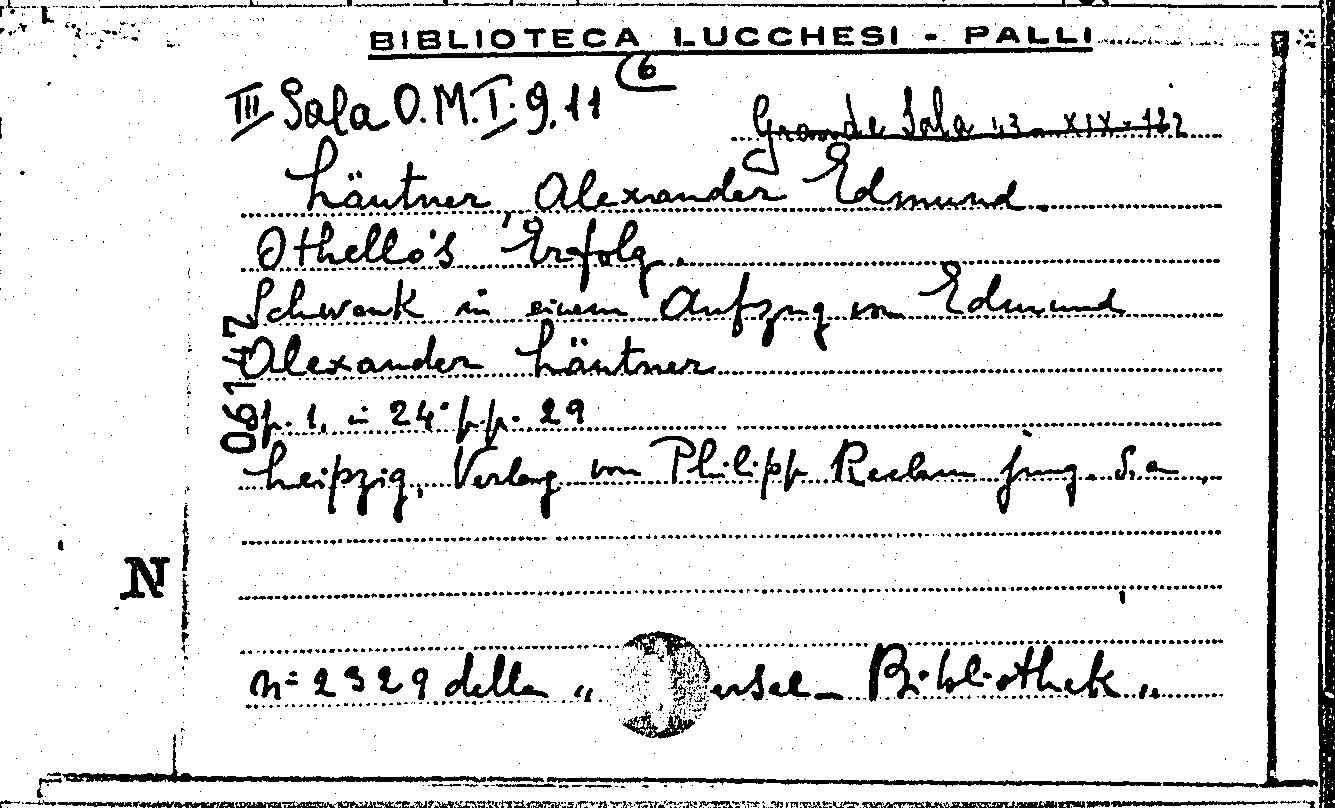 BIBLIOTECA LUCCHESI - PALLI
III Sala O.M.I. 9.11 (6
Grande Sala 43 XIX. 122
Läutner, Alexander Edmund.
Othello's Erfolg.
Schwank in einem Aufzug von Edmund
Alexander Läutner
p. 1. in 24° pp. 29
Leipzig, Verlag von Philipp Reclam jung. S.a.
n° 2329 della " ersal - Bibliothek "
06147
N